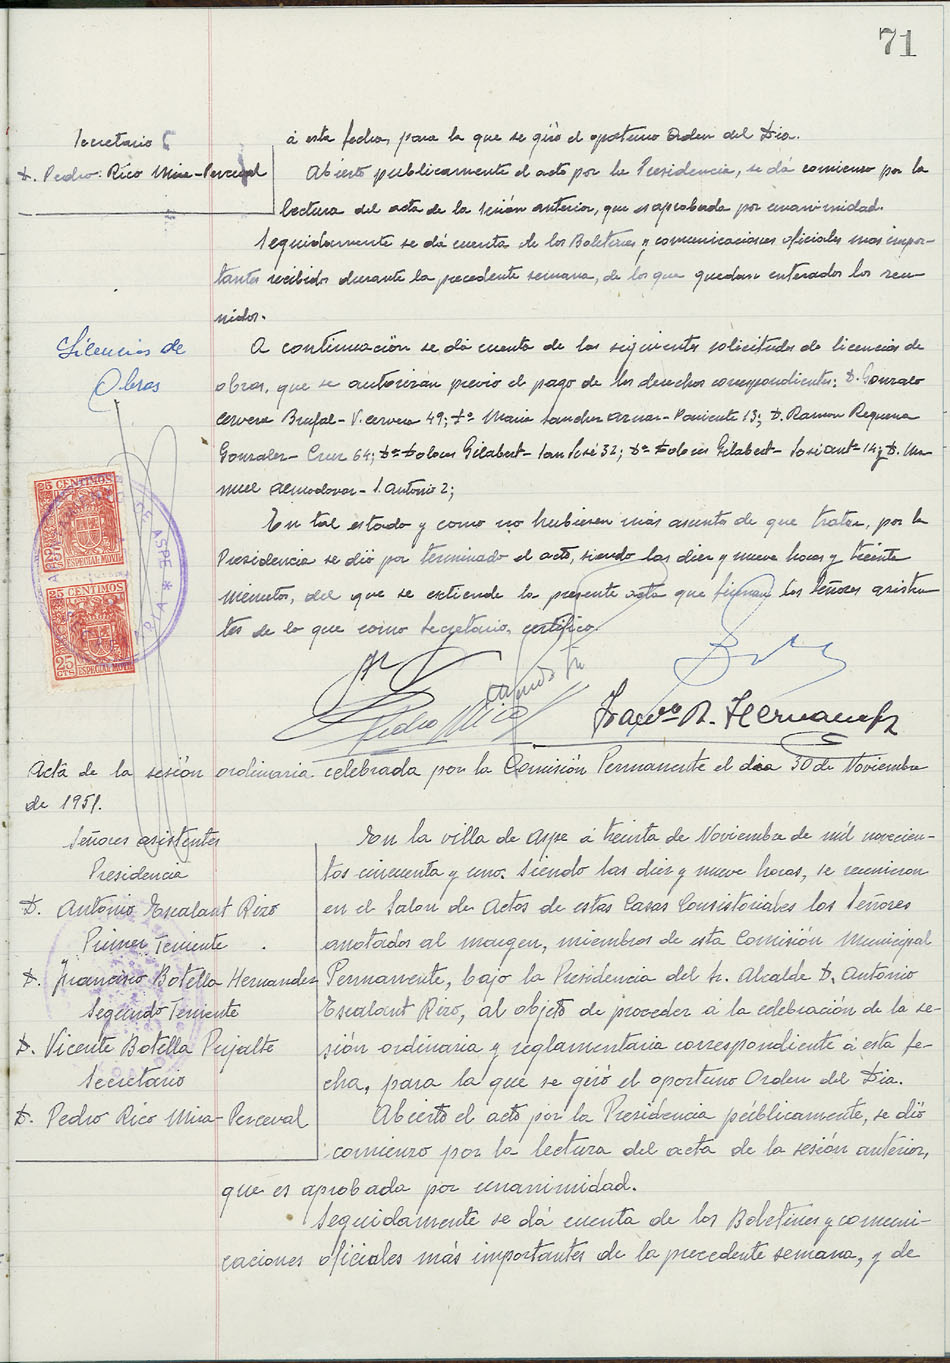 71
Secretario
D. Pedro Rico Mira-Perceval
á esta fecha, para la que se giró el oportuno Orden del Dia.
Abierto publicamente el acto por la Presidencia, se dá comienzo por la
lectura del acta de la sesión anterior, que es aprobada por unanimidad.
Seguidamente se dá cuenta de los Boletines y comunicaciones oficiales mas impor-
tantes recibidos durante la precedente semana, de los que quedaron enterados los reu-
nidos.
Licencias de
Obras
A continuación se dá cuenta de las siguientes solicitudes de licencias de
obras, que se autorizan previo el pago de los derechos correspondientes: D. Gonzalo
Cervera Brufal- V. Cervera 49; Dª Maria Sanchez Aznar- Poniente 13; D. Ramon Requena
Gonzalez- Cruz 64; Dª Dolores Gilabert- San José 32; Dª Dolores Gilabert- José Ant- 14 y D. Ma-
nuel Almodovar- S. Antonio 2;
En tal estado y como no hubiesen más asuntos de que tratar, por la
Presidencia se dió por terminado el acto, siendo las diez y nueve horas y treinta
minutos, del que se extiende la presente acta que firman los Señores asisten-
tes de lo que como Secretario, certifico.
25 CENTIMOS
ESPECIAL MOVIL
25 CENTIMOS
25 CTS
ESPECIAL MOVIL
DE ASPE *
Pedro Rico
Franco B. Hernandez
Acta de la sesión ordinaria celebrada por la Comisión Permanente el dia 30 de Noviembre
de 1951.
Señores asistentes
Presidencia
D. Antonio Escalant Rizo
Primer Teniente
D. Francisco Botella Hernandez
Segundo Teniente
D. Vicente Botella Pujalte
Secretario
D. Pedro Rico Mira-Perceval
En la villa de Aspe á treinta de Noviembre de mil novecien-
tos cincuenta y uno: Siendo las diez y nueve horas, se reunieron
en el Salon de Actos de estas Casas Consistoriales los Señores
anotados al margen, miembros de esta Comisión Municipal
Permanente, bajo la Presidencia del Sr. Alcalde D. Antonio
Escalant Rizo, al objeto de proceder á la celebración de la se-
sión ordinaria y reglamentaria correspondiente á esta fe-
cha, para la que se giró el oportuno Orden del Dia.
Abierto el acto por la Presidencia públicamente, se dió
comienzo por la lectura del acta de la sesión anterior,
que es aprobada por unanimidad.
Seguidamente se dá cuenta de los Boletines y comuni-
caciones oficiales más importantes de la precedente semana, y de